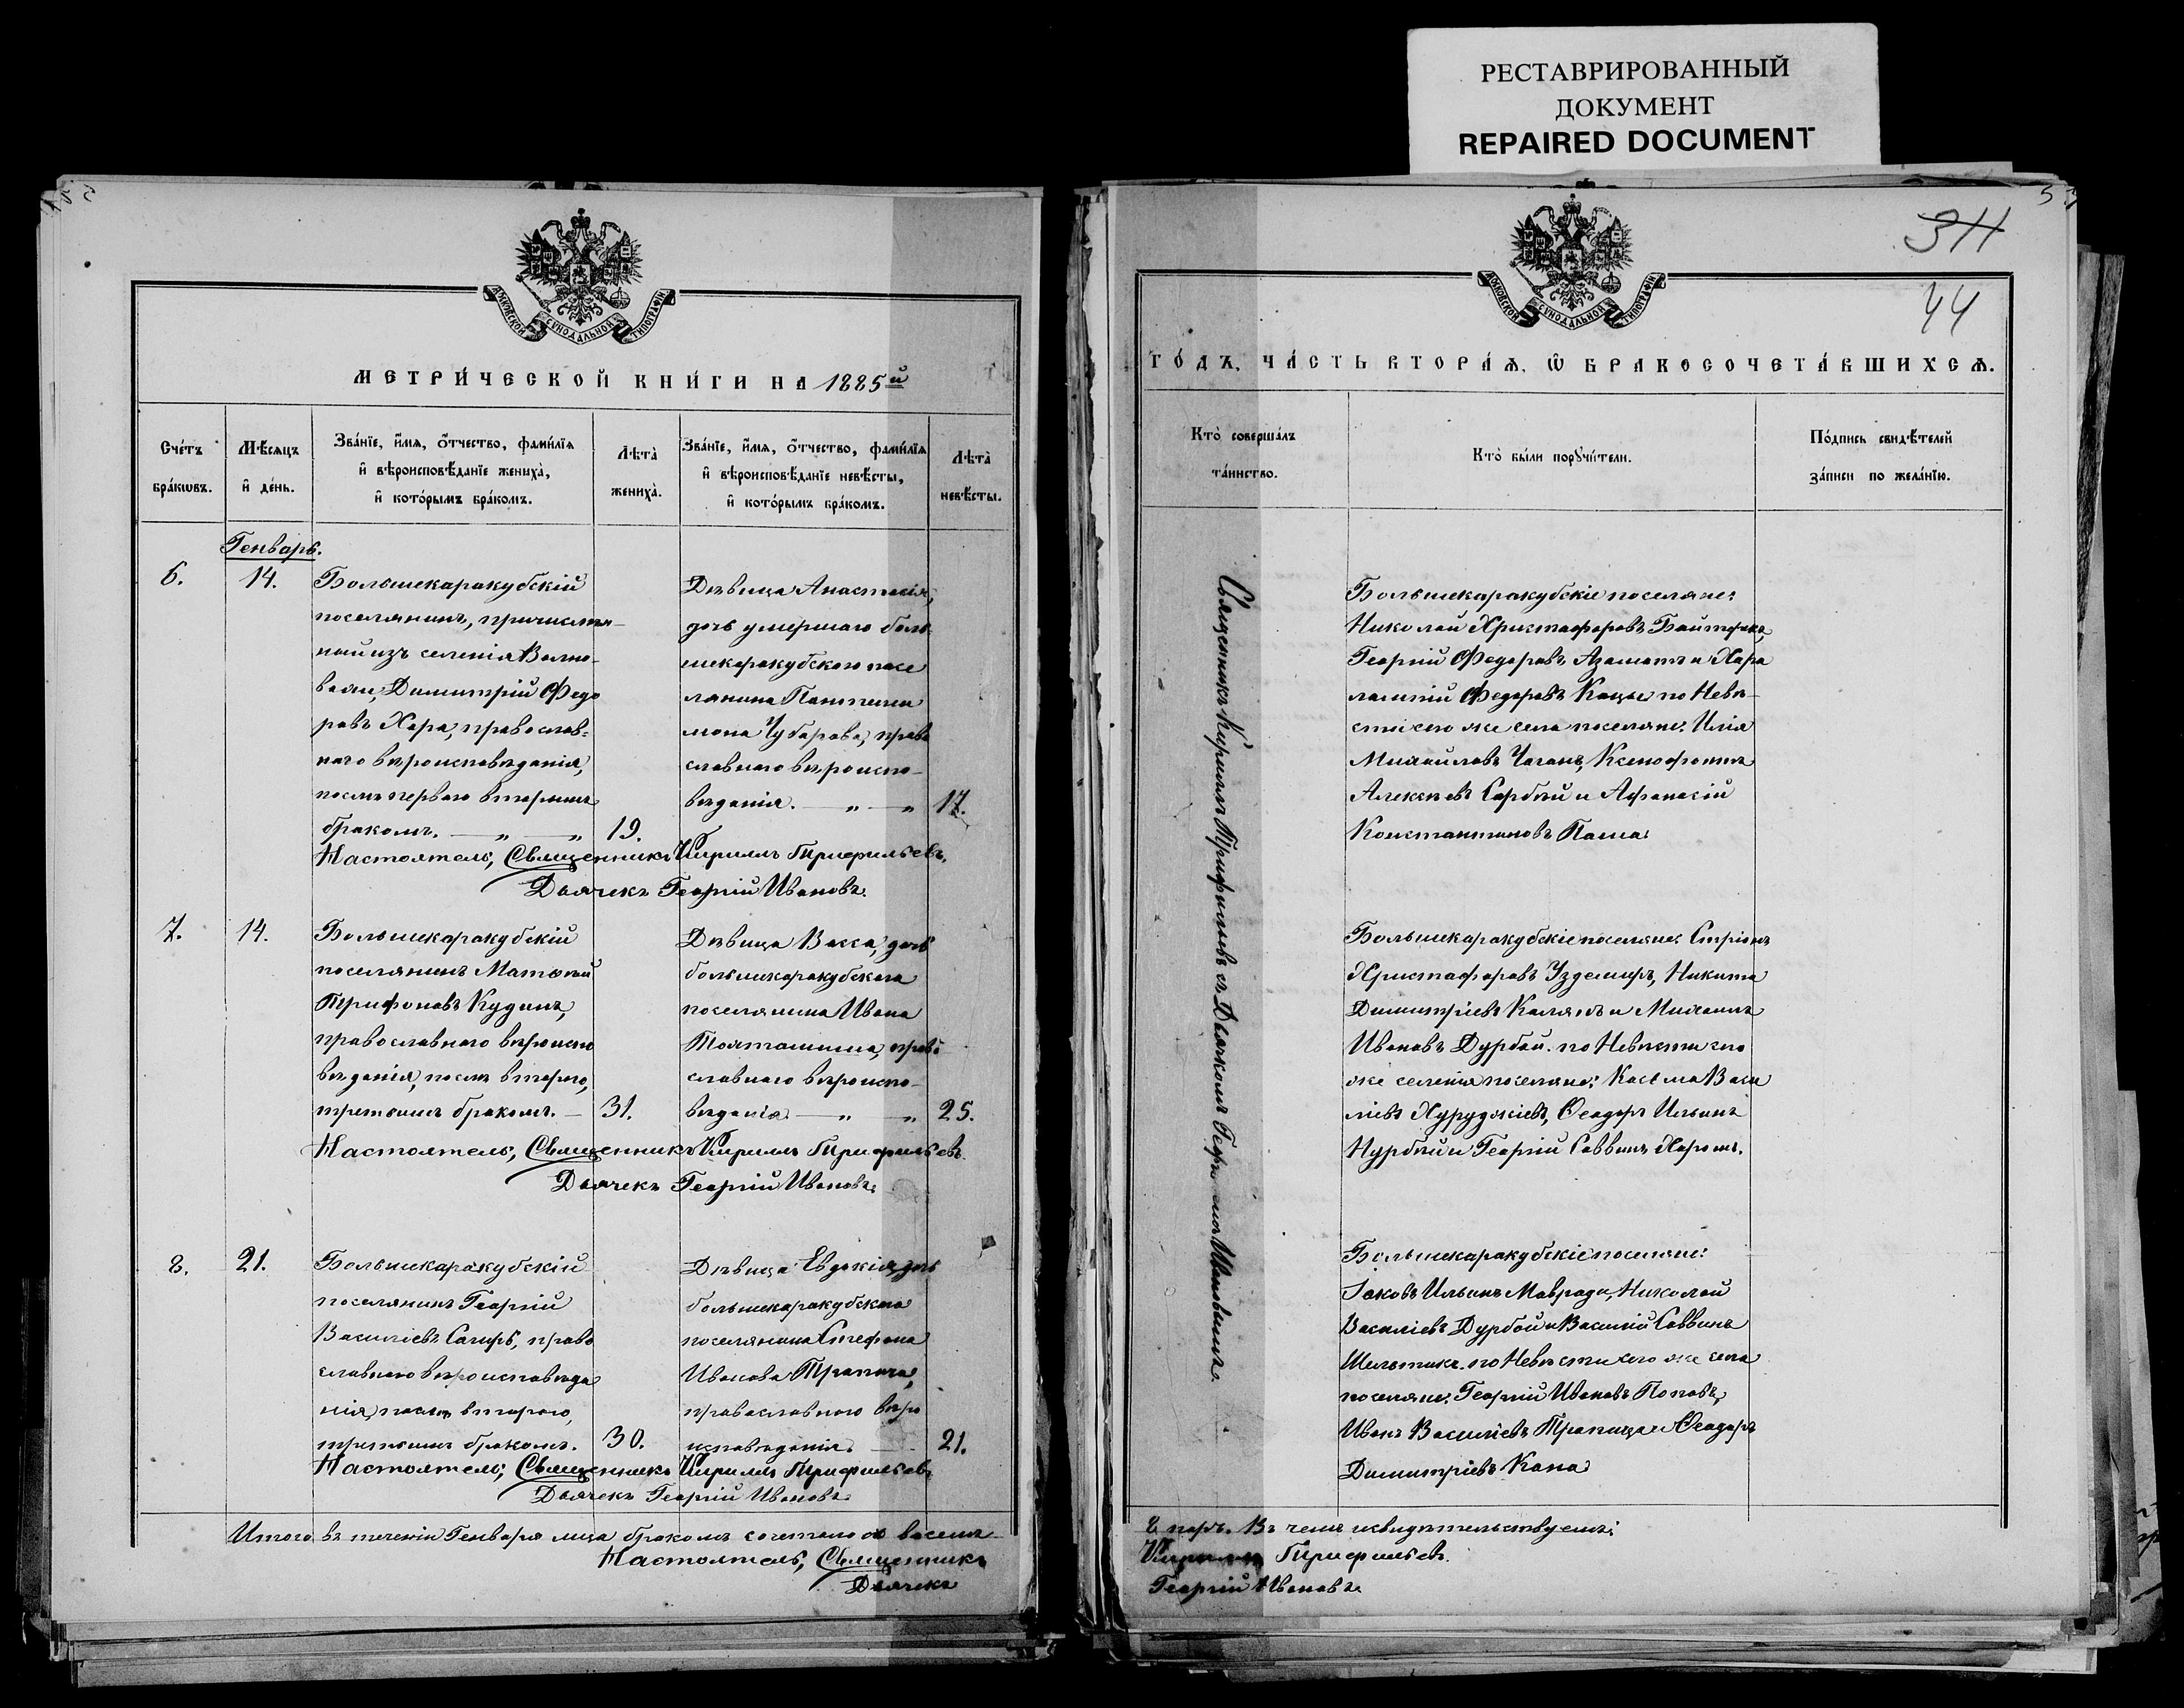 РЕСТАВРИРОВАННЫЙ
ДОКУМЕНТ
REPAIRED DOCUMENT
МОСКОВСКОЙ СУНОДАЛЬНОЙ ТИПОГРАФІИ
МЕТРИ́ЧЕСКОЙ КНИ́ГИ НА 1885й
Сче́тъ
бра́кωвъ.
Мѣ́сяцъ
и҆ де́нь.
Зва́нїе, и҆́мя, ѻ҆́тчество, фами́лїя
и҆ вѣроисповѣ́данїе жениха̀,
и҆ кото́рымъ бра́комъ.
Лѣта̀
жениха̀.
Зва́нїе, и҆́мя, ѻ҆́тчество, фами́лїя
и҆ вѣроисповѣ́данїе невѣ́сты,
и҆ кото́рымъ бра́комъ.
Лѣта̀
невѣ́сты.
Генварь.
6.
14.
Большекаракубскій
поселянинъ, причислен-
ный изъ селенія Волно-
вахи, Димитрій Федо
ровъ Хара, православ-
наго вѣроисповѣданія,
послѣ перваго вторымъ
бракомъ. — „ — „
19.
Дѣвица Анастасія,
дочь умершаго боль-
шекаракубскаго посе
лянина Пантелеи
мона Чубарова, право
славнаго вѣроиспо-
вѣданія. — „ — „
17.
Настоятель, Священникъ Кириллъ Трифильевъ.
Дьячекъ Георгій Ивановъ.
7.
14.
Большекаракубскій
поселянинъ Матѳей
Трифоновъ Кудинъ,
православнаго вѣроиспо
вѣданія, послѣ втораго,
третьимъ бракомъ. —
31.
Дѣвица Васса, дочь
большекаракубскаго
поселянина Ивана
право
славнаго вѣроиспо-
вѣданія — „ — „
25.
Настоятель, Священникъ Кириллъ Трифильевъ.
Дьячекъ Георгій Ивановъ.
8.
21.
Большекаракубскій
поселянинъ Георгій
Василіевъ Сагиръ, право
славнаго вѣроисповѣда
нія, послѣ втораго,
третьимъ бракомъ.
30.
Дѣвица Евдокія, дочь
большекаракубскаго
поселянина Стефана
Иванова
православнаго вѣро
исповѣданія. —
21.
Настоятель, Священникъ Кириллъ Трифильевъ
Дьячекъ Георгій Ивановъ.
Итого въ теченіи Генваря мца бракомъ сочеталось восемь
Настоятель, Священникъ
Дьячекъ
МОСКОВСКОЙ СУНОДАЛЬНОЙ ТИПОГРАФІИ
44
ГО́ДЪ, ЧА́СТЬ ВТОРА́Я, Ѡ҆ БРАКОСОЧЕТА́ВШИХСЯ.
Кто̀ соверша́лъ
та́инство.
Кто̀ бы́ли порꙋчи́тели.
По́дпись свидѣ́телей
за́писи по жела́нїю.
Священникъ Кириллъ Трифильевъ съ Дьячкомъ Георгіемъ Ивановымъ.
Большекаракубскіе поселяне:
Николай Христофоровъ
Георгій Федоровъ Азаматъ и Хара
лампій Федоровъ Кацы по Невѣ-
стѣ сего же села поселяне: Илія
Михайловъ Чаганъ, Ксенофонтъ
Алексѣевъ Сарбѣй и Афанасій
Константиновъ Паша.
Большекаракубскіе поселяне:
Христофоровъ Уздемиръ, Никита
Димитріевъ и Михаилъ
Ивановъ Дурбай. по Невѣсти сего
же селенія поселяне: Косьма Васи
ліевъ Хуруджіевъ, Ѳеодоръ Ильинъ
Нурбѣй и Георгій Саввинъ
Большекаракубскіе поселяне:
Іаковъ Ильинъ Мавроди, Николай
Василіевъ Дурбай и Василій Саввинъ
по Невѣсти сего же села
поселяне: Георгій Ивановъ Поповъ,
Иванъ Василіевъ и Ѳеодоръ
Димитріевъ Капа
8 паръ. Въ чемъ и свидѣтельствуемъ:
Кириллъ Трифильевъ.
Георгій Ивановъ.